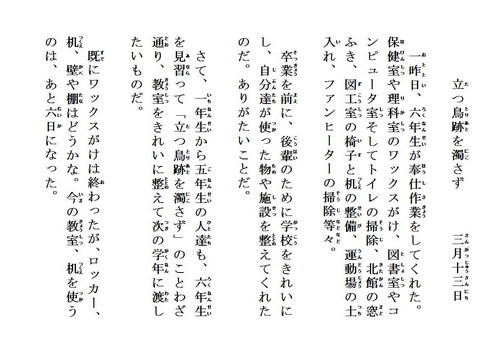 立つ鳥跡を濁さず　　三月十三日
一昨日、六年生が奉仕作業をしてくれた。
保健室や理科室のワックスがけ、図書室やコ
ンピュータ室そしてトイレの掃除、北館の窓
ふき、図工室の椅子と机の整備、運動場の土
入れ、ファンヒーターの掃除等々。
卒業を前に、後輩のために学校をきれいに
し、自分達が使った物や施設を整えてくれた
のだ。ありがたいことだ。
さて、一年生から五年生の人達も、六年生
を見習って「立つ鳥跡を濁さず」のことわざ
通り、教室をきれいに整えて次の学年に渡し
たいものだ。
既にワックスがけは終わったが、ロッカー、
机、壁や棚はどうかな。今の教室、机を使う
のは、あと六日になった。